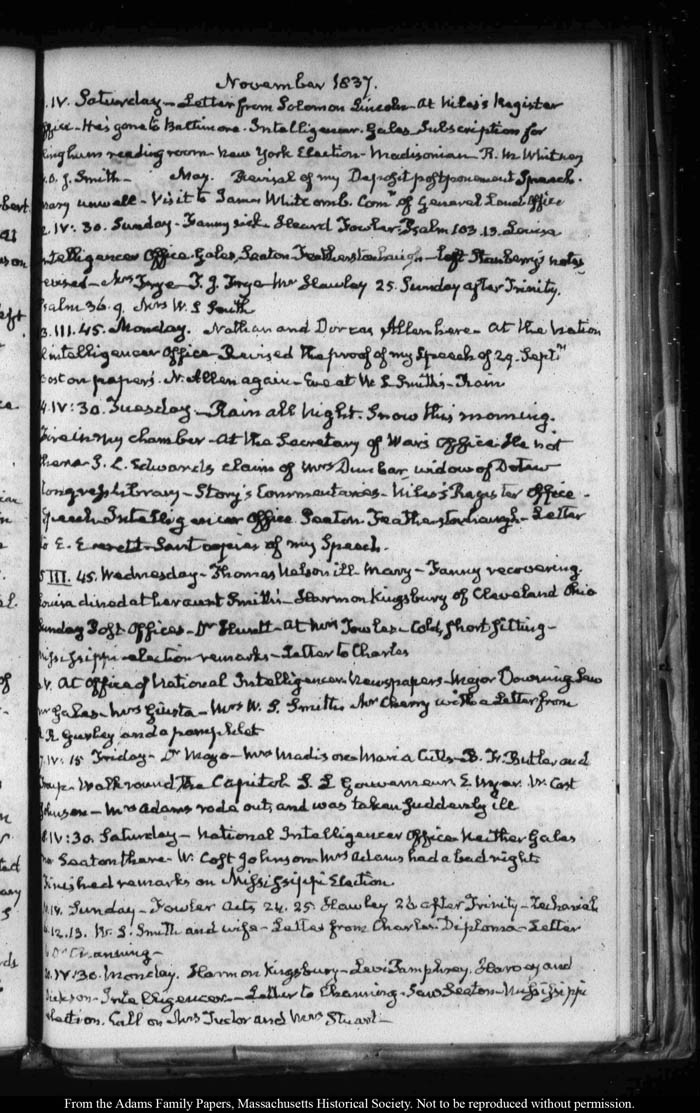 November 1837.
IV. Saturday - Letter from Solomon Lincoln - At Niles's Register
office - He's gone to Baltimore. Intelligencer. Gales Subscription for
reading room - New York Election - Madisonian - R. M. Whitney
J. Smith - May. Revisal of my Deposit postponement Speech.
Mary unwell - Visit to James Whitcomb. Com.r of General Land Office
IV: 30. Sunday - Fanny sick - Heard Fowler. Psalm 103. 13. Louisa
Intelligencer Office. Gales, Seaton. Featherstonhaugh - Left Stanbery's notes
revised - Mrs Frye - T. J. Frye - Mr Hawley 25. Sunday after Trinity.
Psalm 36. 9. Mrs W. S Smith
III. 45. Monday. Nathan and Dorcas Allen here - At the Nation
Intelligencer Office - Revised the proof of my Speech of 29. Septr
Boston papers. N. Allen again - Eve at W. S. Smith's - Rain
IV: 30. Tuesday - Rain all Night. Snow this morning.
Fire in my chamber - At the Secretary of War's Office. He not
there. S. L. Edwards claim of Mrs Dunbar, widow of
Congress Library - Story's Commentaries - Niles's Register Office -
Speech - Intelligencer Office Seaton. Featherstonhaugh - Letter
to E. Everett - Sent copies of my Speech.
III. 45. Wednesday - Thomas Nelson ill - Mary - Fanny recovering.
Louisa dined at her aunt Smith's - Harmon Kingsbury of Cleveland Ohio
Sunday Post Offices - Dr Hunt - At Mrs Towles - Cold, short sitting -
Mississippi - election remarks - Letter to Charles
V. At Office of National Intelligencer. Newspapers - Major Downing Saw
Mr Gales - Mrs Giusta - Mrs W. S. Smith Mr Cherry with a Letter from
R. R Gurley and a pamphlet
IV: 15 Friday - Dr Mayo - Mrs Madison - Maria Cutts - B. F. Butler and
Walk round the Capitol S. L Gouverneur E Wyer. W. Cost
Johnson - Mrs Adams rode out, and was taken suddenly ill
IV: 30. Saturday - National Intelligencer Office - Neither Gales
nor Seaton there - W. Cost Johnson - Mrs Adams had a bad night
Finished remarks on Mississippi Election
IV. Sunday - Fowler Acts 24. 25. Hawley 26 after Trinity - Zechariah
12. 13. W. S. Smith and wife - Letter from Charles. Diploma - Letter
to Dr Channing -
IV: 30. Monday. Harmon Kingsbury - Levi Humphrey. Harvey and
Dickson - Intelligencer - Letter to Channing - Saw Seaton - Mississippi
election. Call on Mrs Tudor and Mrs Stuart -
From the Adams Family Papers, Massachusetts Historical Society. Not to be reproduced without permission.